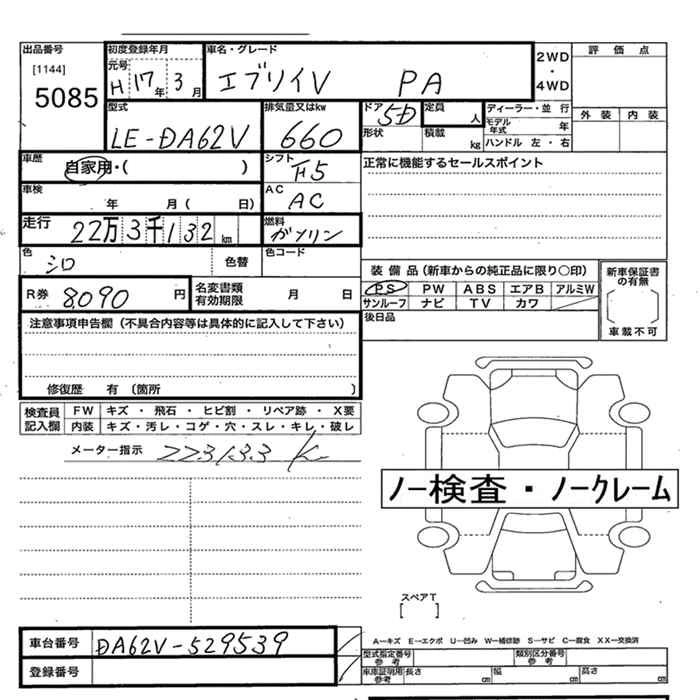 出品番号
[1144]
5085
初度登録年月
元号
H 17年 3月
車名・グレード
エブリイV PA
2WD
・
4WD
評価点
外装 内装
型式
LE-DA62V
排気量又はkw
660
ドア 5D
形状
定員 人
積載 kg
ディーラー・並行
モデル年式 年
ハンドル 左・右
車歴
自家用・( )
シフト
F5
正常に機能するセールスポイント
車検
年 月( 日)
AC
AC
走行
22万3千132km
燃料
ガソリン
色
シロ
色替
色コード
装備品(新車からの純正品に限り○印)
PS PW ABS エアB アルミW
サンルーフ ナビ TV カワ
新車保証書の有無
[ ]
車載不可
R券 8,090 円
名変書類有効期限
月 日
後日品
注意事項申告欄(不具合内容等は具体的に記入して下さい)
修復歴 有(箇所 )
検査員記入欄
FW キズ・飛石・ヒビ割・リペア跡・X要
内装 キズ・汚レ・コゲ・穴・スレ・キレ・破レ
メーター指示 223133K
ノー検査・ノークレーム
スペアT
[ ]
車台番号 DA62V-529539
登録番号
A−キズ E−エクボ U−凹み W−補修跡 S−サビ C−腐食 XX−交換済
型式指定番号 参考
類別区分番号 参考
車庫証明用 参考 長さ cm 幅 cm 高さ cm